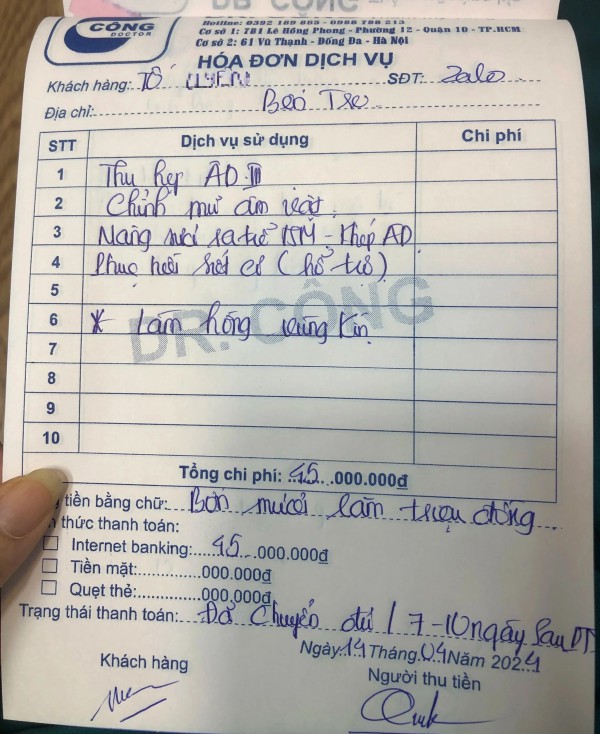 DR CÔNG
CÔNG
DOCTOR
Hotline: 0392 189 895 - 0988 798 213
Cơ sở 1: 781 Lê Hồng Phong - Phường 12 - Quận 10 - TP.HCM
Cơ sở 2: 61 Vũ Thạnh - Đống Đa - Hà Nội
HÓA ĐƠN DỊCH VỤ
Khách hàng: Tố Uyên SĐT: Zalo
Địa chỉ: Bến Tre
STT Dịch vụ sử dụng Chi phí
1 Thu hẹp ÂĐ III
2 Chỉnh mũ âm vật
3 Nâng sa trễ TSM - Khép ÂĐ
4 Phục hồi (hỗ trợ)
5
6 * Làm hồng vùng kín
7
8
9
10
DR. CÔNG
Tổng chi phí: 45.000.000đ
tiền bằng chữ: Bốn mươi lăm triệu đồng
thức thanh toán:
Internet banking: 45.000.000đ
Tiền mặt: .000.000đ
Quẹt thẻ: .000.000đ
Trạng thái thanh toán: Đã chuyển đủ / 7-10 ngày sau
Ngày 14 Tháng 04 Năm 2024
Khách hàng Người thu tiền